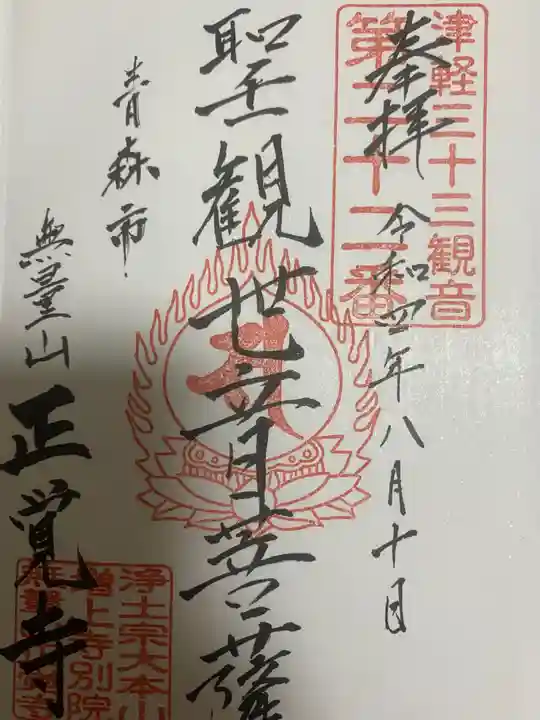 津軽三十三観音
第二十二番
奉拝
令和四年八月十日
聖観世音菩薩
青森市
無量山
正覚寺
浄土宗大本山
増上寺別院